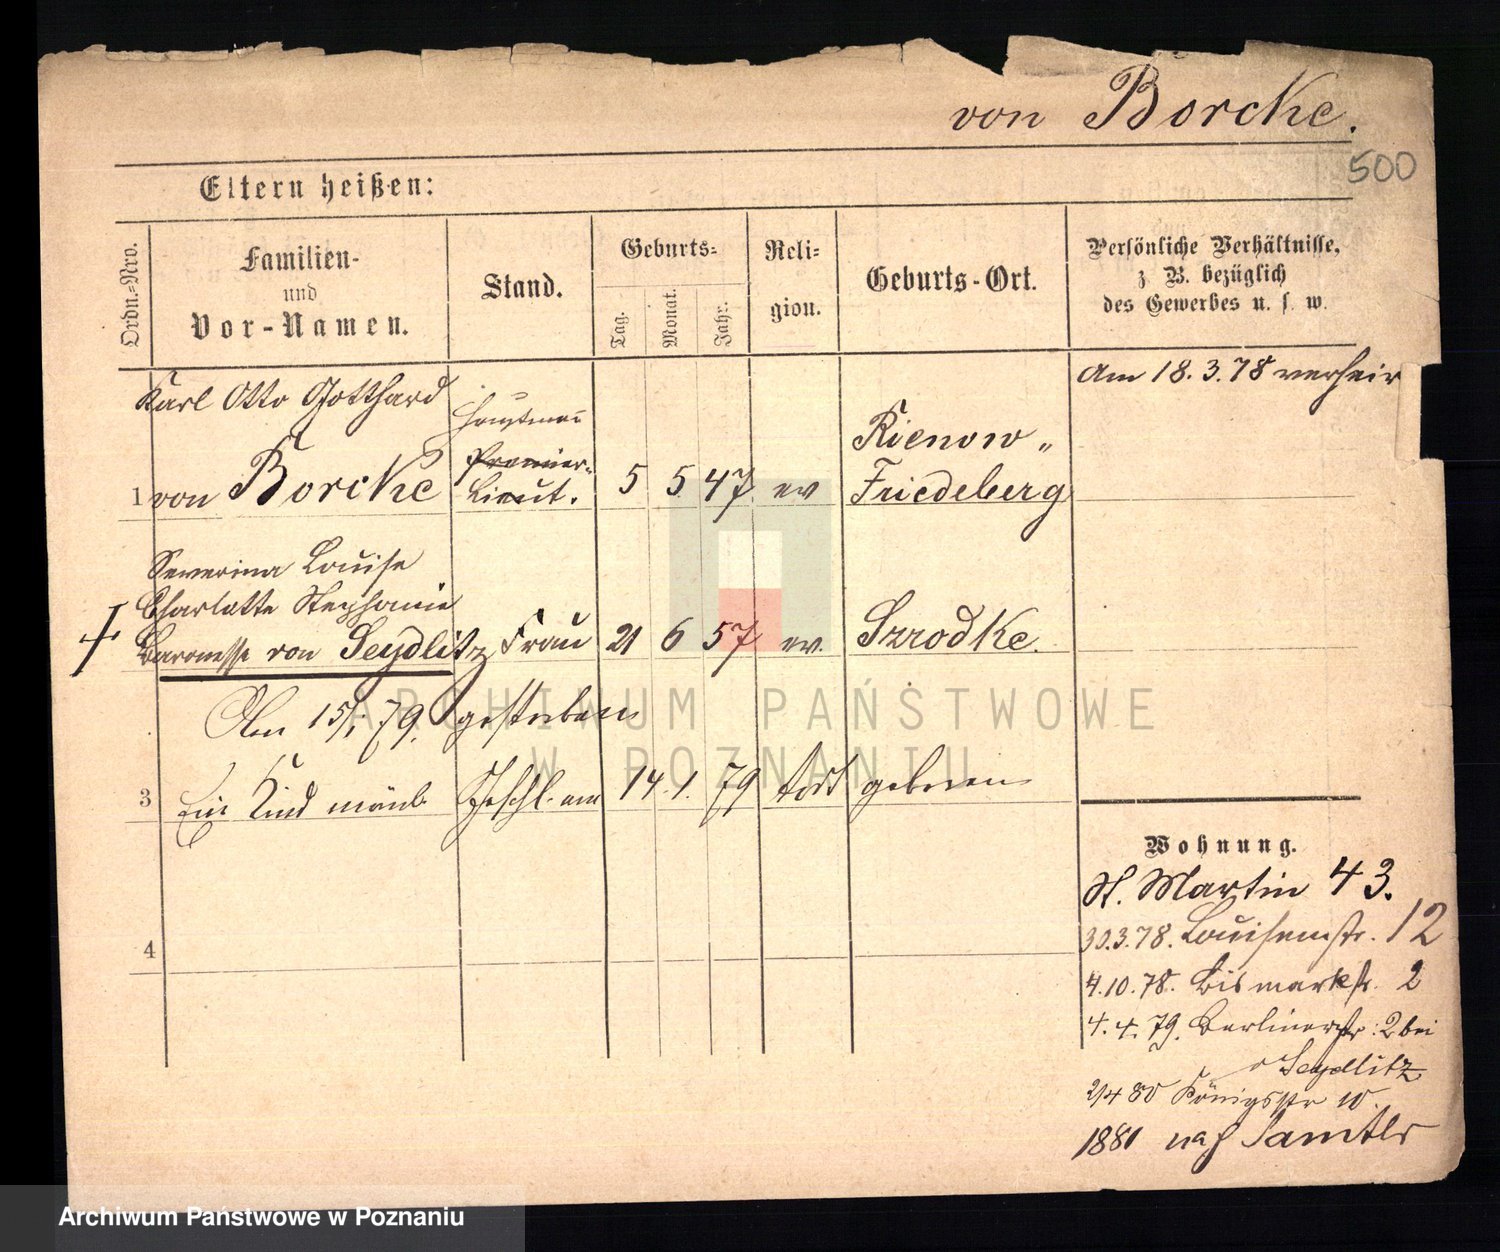 von Borcke.
500
Eltern heißen:
Ordn.-Nro.
Familien-
und
Vor-Namen.
Stand.
Geburts-
Tag.
Monat.
Jahr.
Reli-
gion.
Geburts-Ort.
Persönliche Verhältnisse,
z. B. bezüglich
des Gewerbes u. s. w.
Karl Otto Gotthard
1 von Borcke
Hauptman
Premier-
Lieut.
5 5 47 ev
Rienow "
Friedeberg
Am 18.3.78 verheir
Severina Louise
Charlotte Stephanie
Baronesse von Seydlitz Frau 21 6 57 ev. Szrodke.
Am 15/1 79. gestorben
3 Ein Kind männl. Geschl. am 14.1.79 todt geboren
4
Wohnung.
St. Martin 43.
30.3.78. Louisenstr. 12
4.10.78. Bismarkstr. 2
4.4.79. Berlinerstr: 2 bei
v Seydlitz
2/4 80 Königsstr 10.
1881 nach Samter
ARCHIWUM PAŃSTWOWE
W POZNANIU
Archiwum Państwowe w Poznaniu